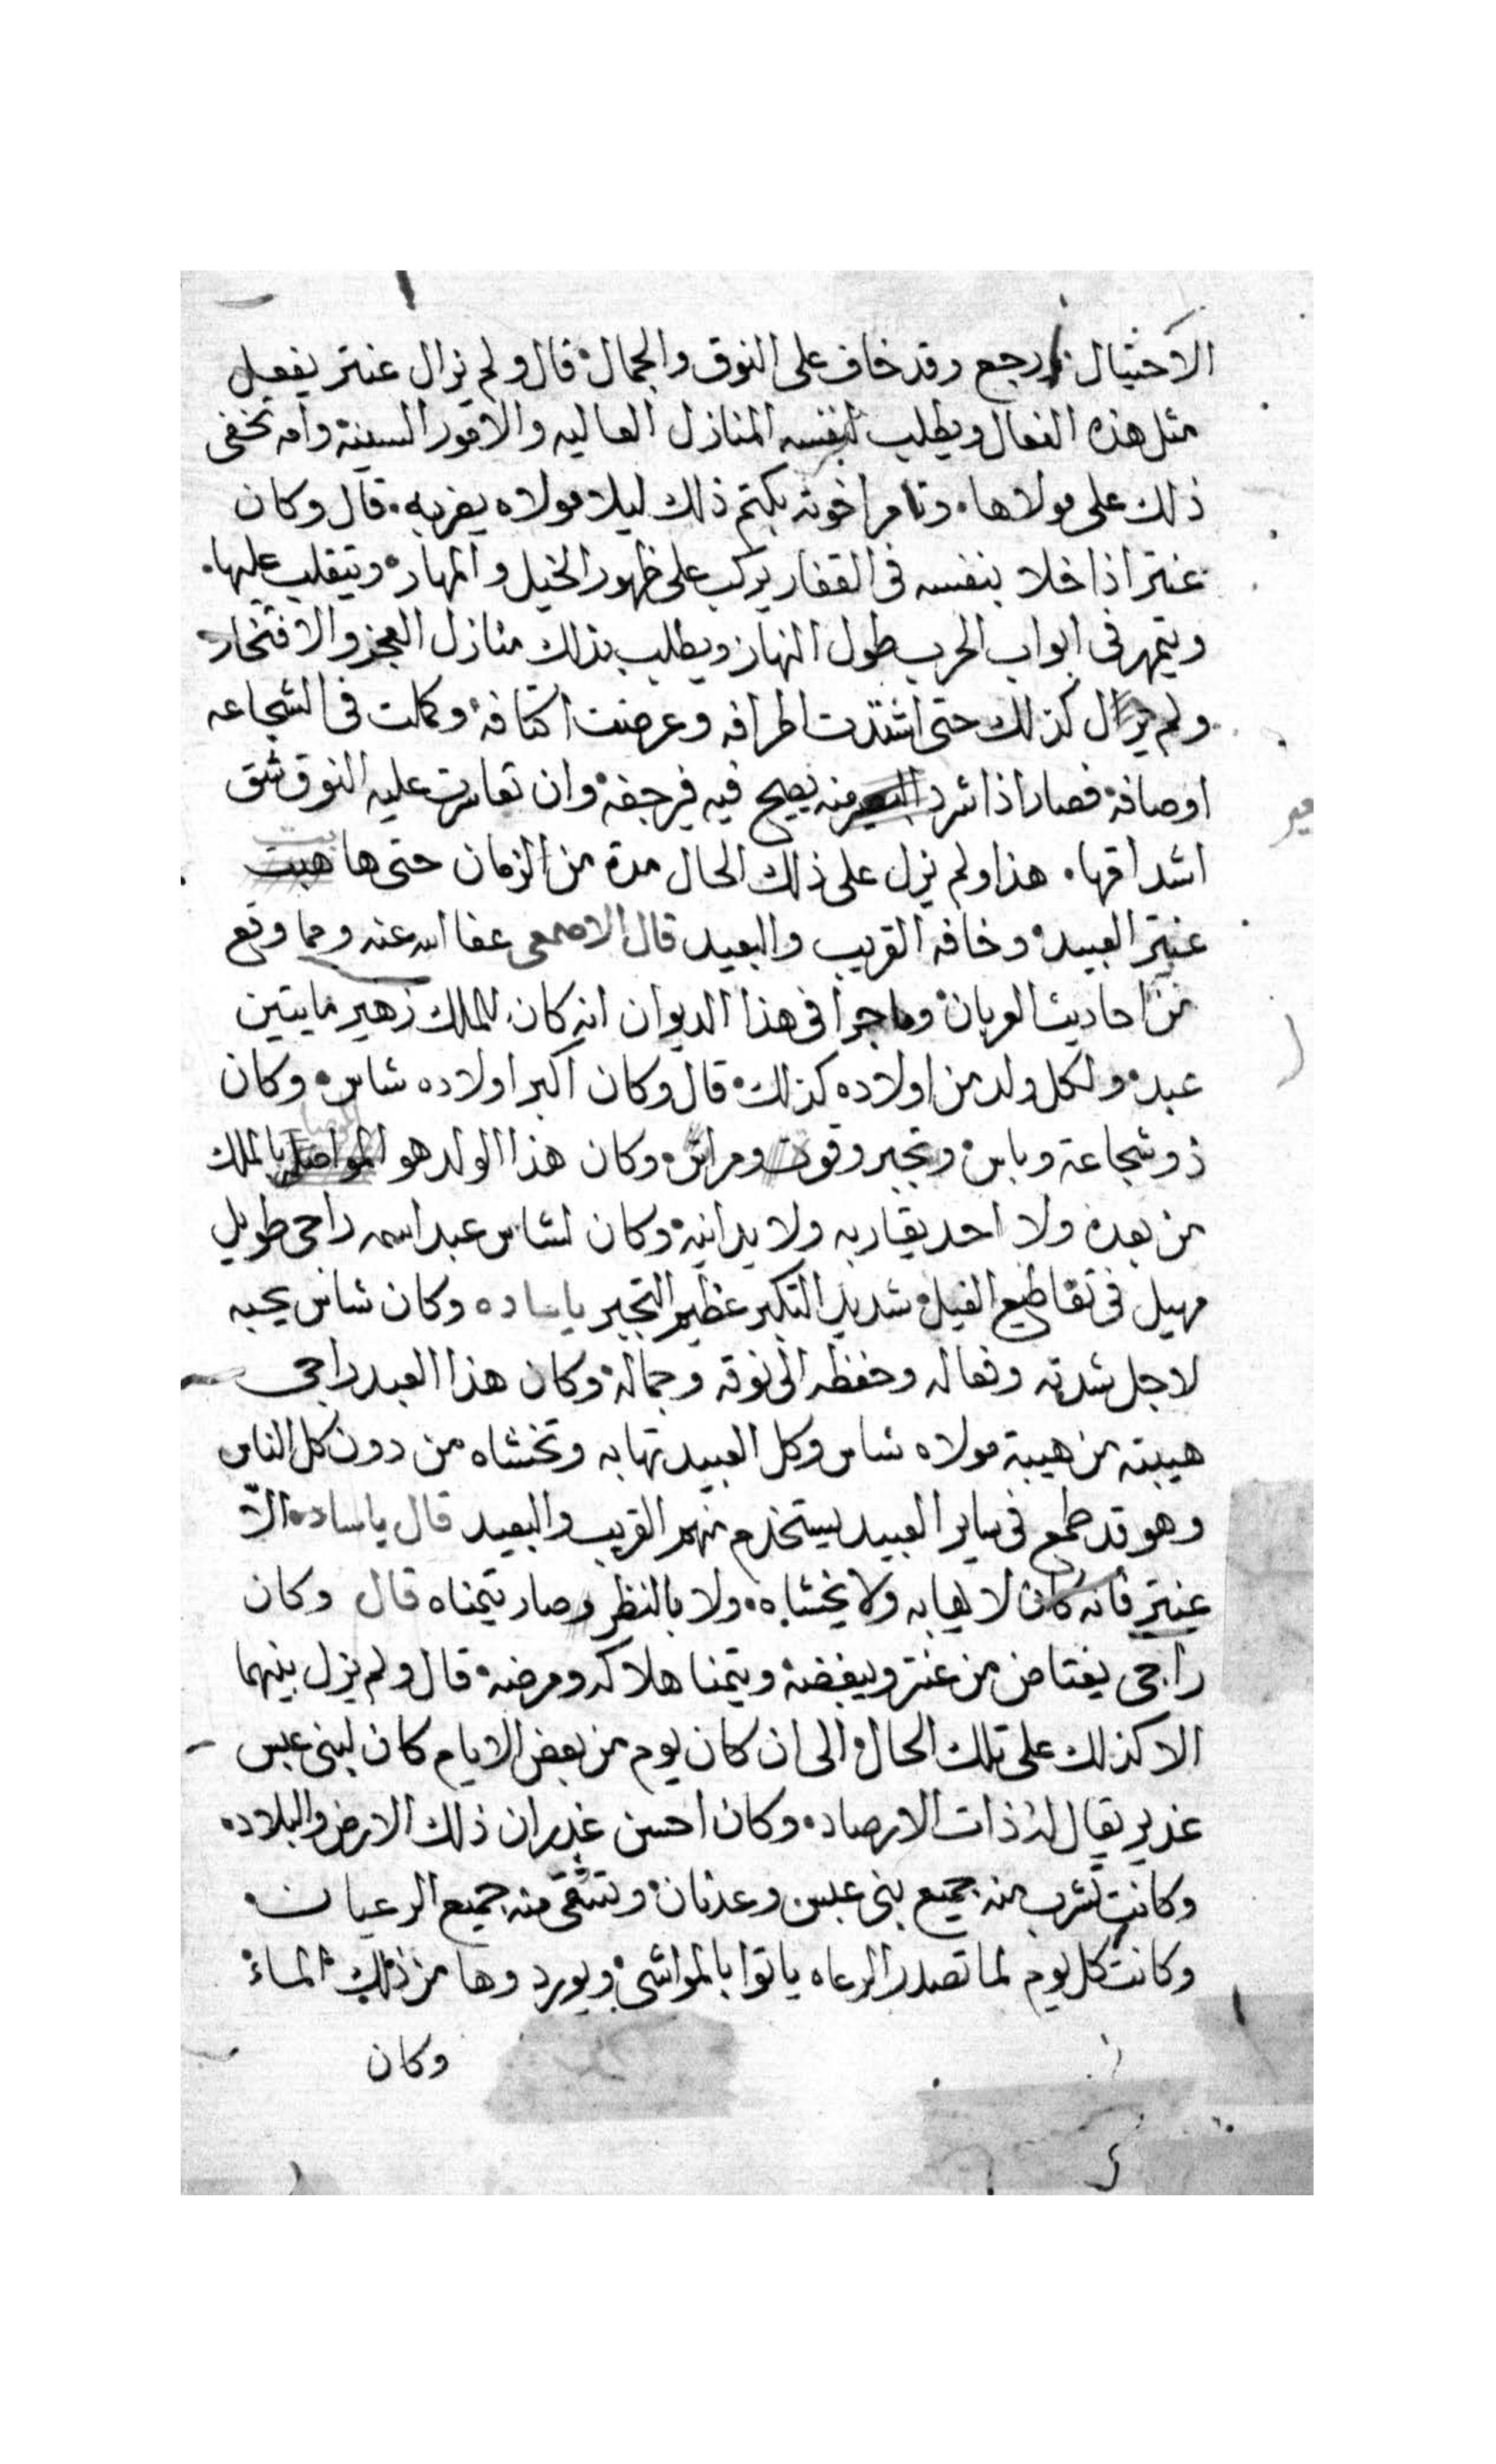 الاحتيال رجع وقد خاف على النوق والجمال قال ولم يزال عنتر يفعل
مثل هذه الفعال ويطلب لنفسه المنازل العاليه والامور السنية وامه تخفى
ذلك على مولاها. وتامر اخوته بكتم ذلك ليلا مولاه يضربه. قال وكان
عنتر اذا خلا بنفسه فى القفار يركب على ظهور الخيل والمهاره ويتقلب عليها.
ويتمهر فى ابواب الحرب طول النهار ويطلب بذلك منازل العجز والافتخار
ولم يزال كذلك حتى اشتدت اطرافه وعرضت اكتافه وكملت فى الشجاعه
اوصافه فصار اذا شرد البعير منه يصيح فيه فيرجفه وان تعاسرت عليه النوق شق
اشداقها. هذا ولم يزل على ذلك الحال مدة من الزمان حتى ها هبت
عنتر العبيد وخافه القريب والبعيد قال الاصمعى عفا الله عنه ومما وقع
من احاديث العربان وما جرا فى هذا الديوان انه كان للملك زهير مايتين
عبد ولكل ولد من اولاده كذلك قال وكان اكبر اولاده شاس وكان
ذو شجاعة وباس وتجبر وقوت ومراس وكان هذا الولد هو بالملك
من بعده ولا احد يقاربه ولا يدانيه وكان لشاس عبد اسمه راجى طويل
مهيل فى تقاطيع الفيل شديد التكبر عظيم التجبر ياساده وكان شاس يحبه
لاجل شدته وفعاله وحفظه الى نوقه وجماله وكان هذا العبد راجى
هيبته من هيبة مولاه شاس وكل العبيد تهابه وتخشاه من دون كل الناس
وهو قد طمع فى ساير العبيد يستخدم منهم القريب والبعيد قال ياساده الا
عنتر فانه كان لا يهابه ولا يخشاه. ولا بالنظر وصار يتمناه قال وكان
راجى يغتاض من عنتر ويبغضه ويتمنا هلاكه ومرضه قال ولم يزل بينهما
الا كذلك على تلك الحال الى ان كان يوم من بعض الايام كان لبنى عبس
غدير يقال له ذات الارصاد. وكان احسن غدران ذلك الارض والبلاد.
وكانت تشرب منه جميع بنى عبس وعدنان وتستقى منه جميع الرعيان
وكانت كل يوم لما تصدر الرعاه ياتوا بالمواشى ويوردوها من ذلك الماء
وكان